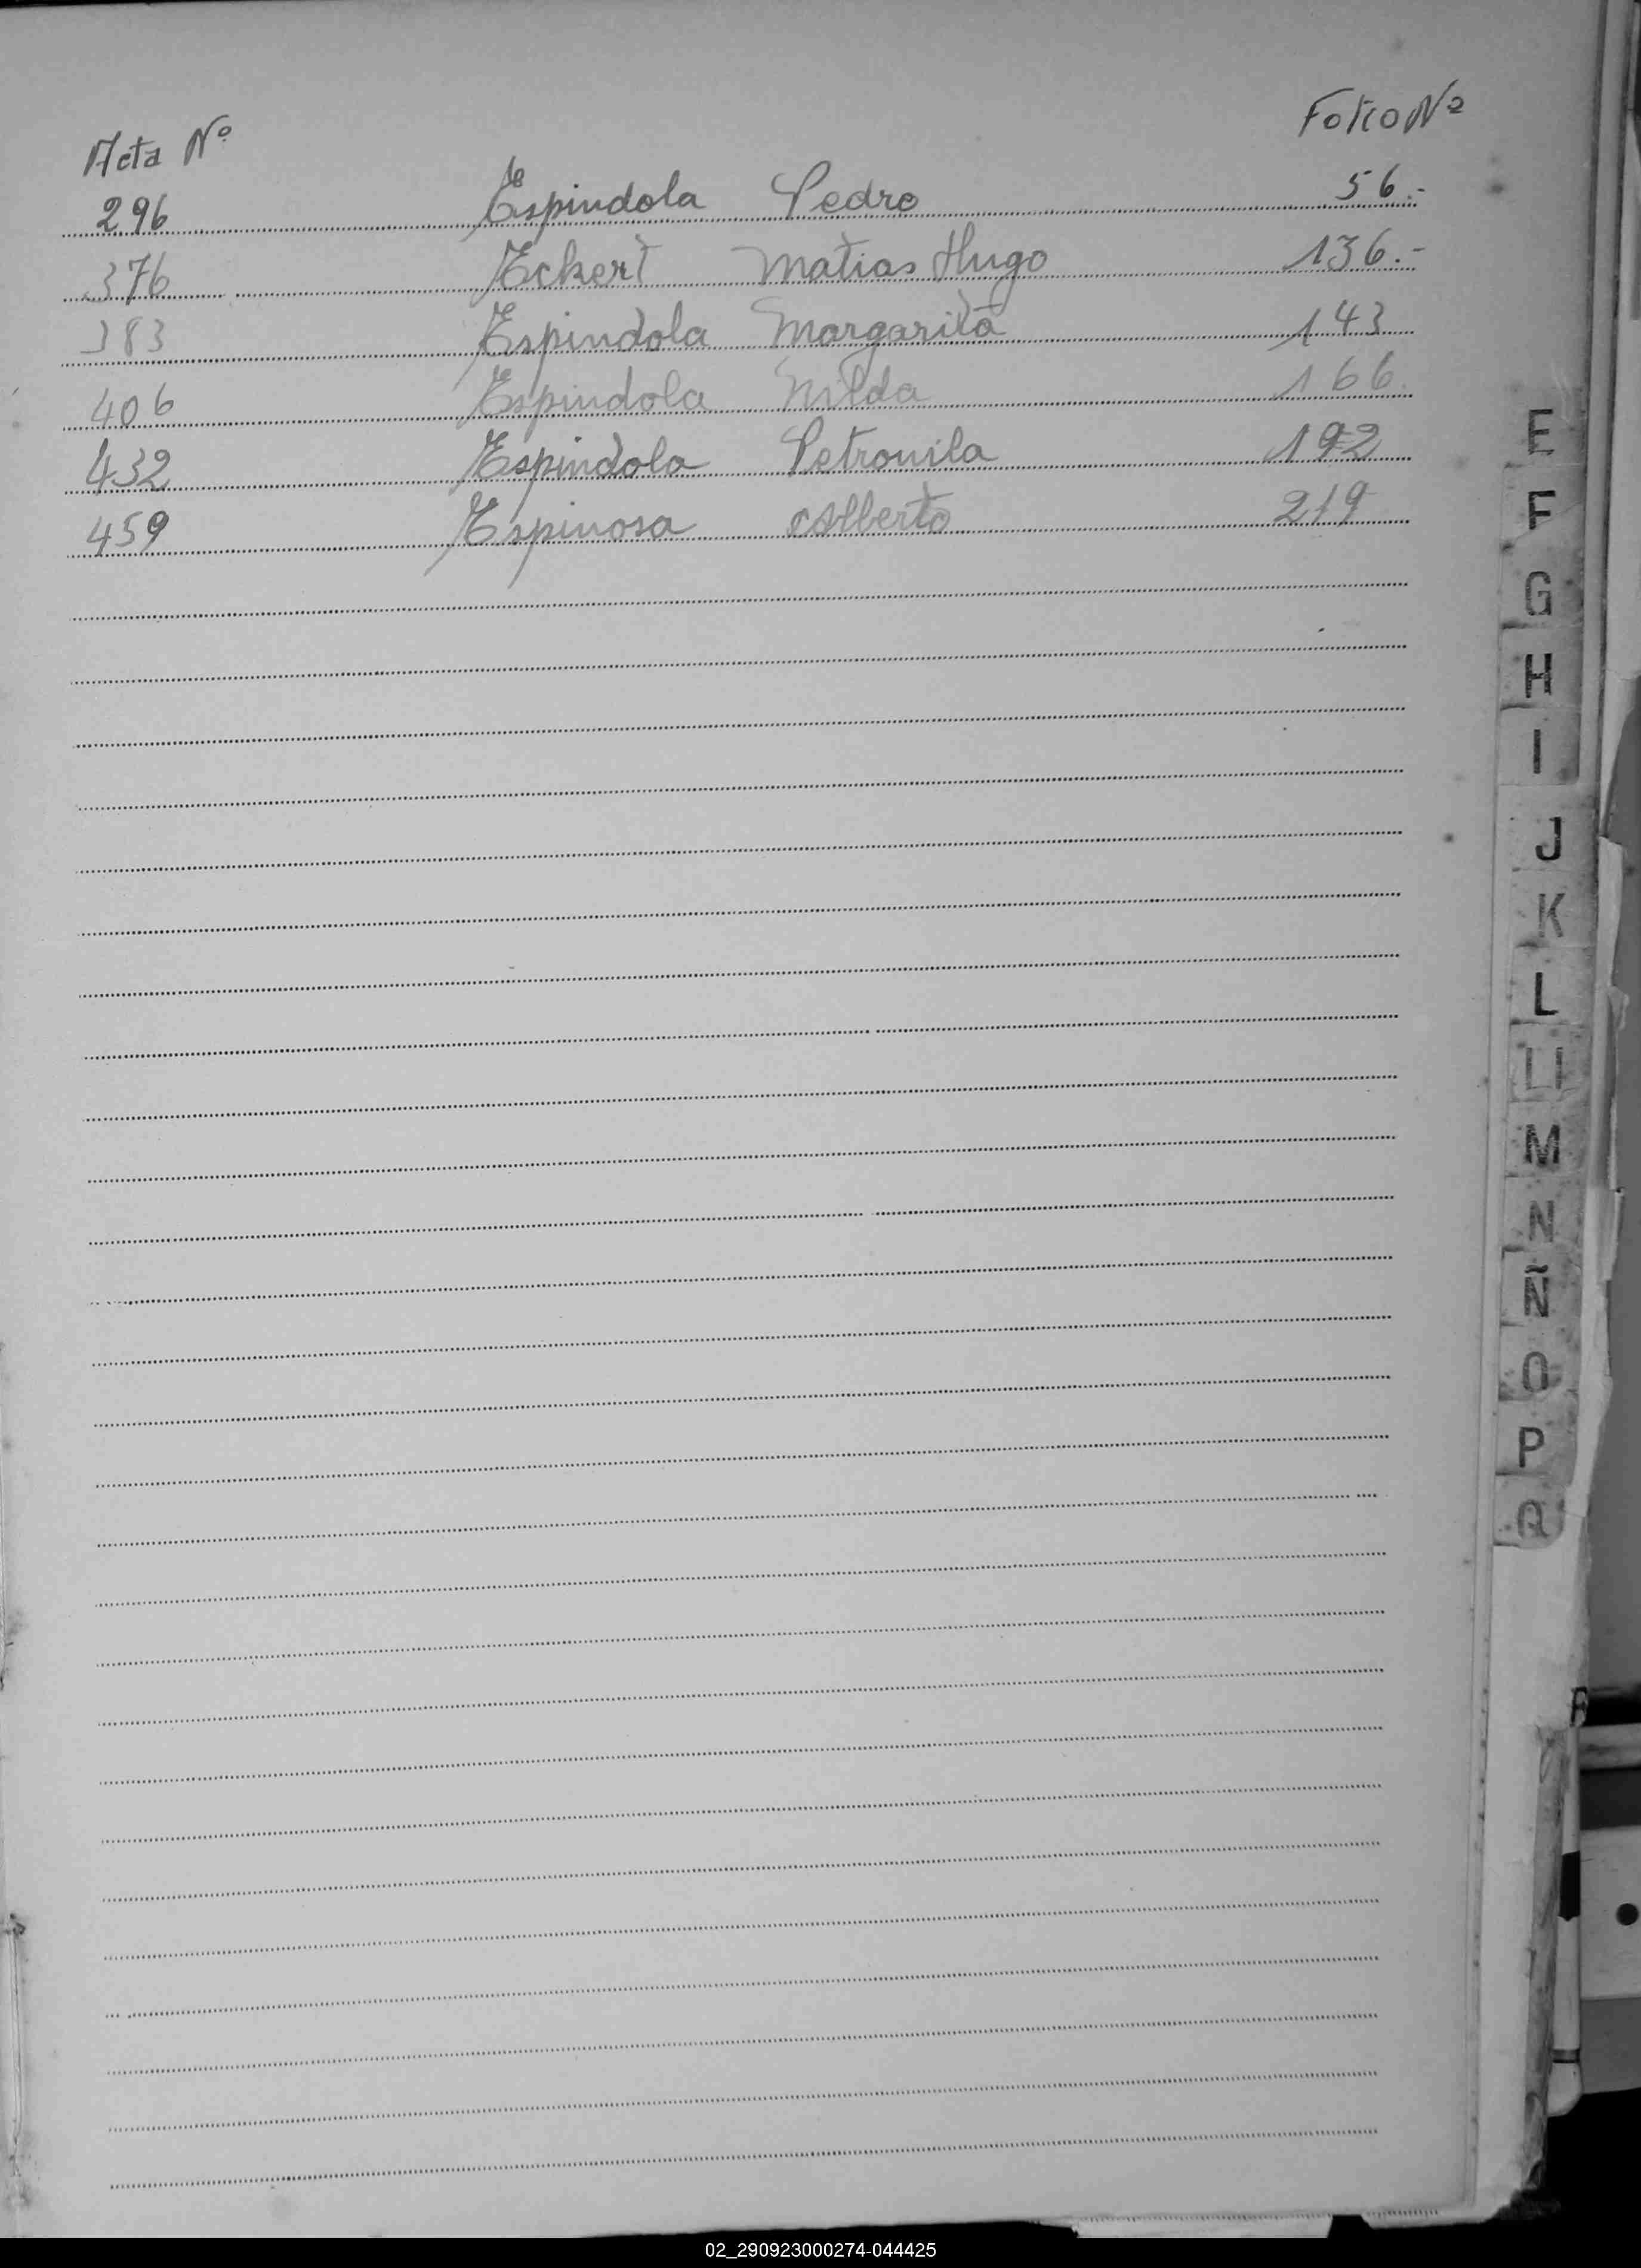 Acta Nº Folio Nº
296 Espindola Pedro 56.-
376 Eckert Matias Hugo 136.-
383 Espindola Margarita 143
406 Espindola Nilda 166.
432 Espindola Petronila 192
459 Espinosa Alberto 219
E
F
G
H
I
J
K
L
Ll
M
N
Ñ
O
P
Q
R
02_290923000274-044425